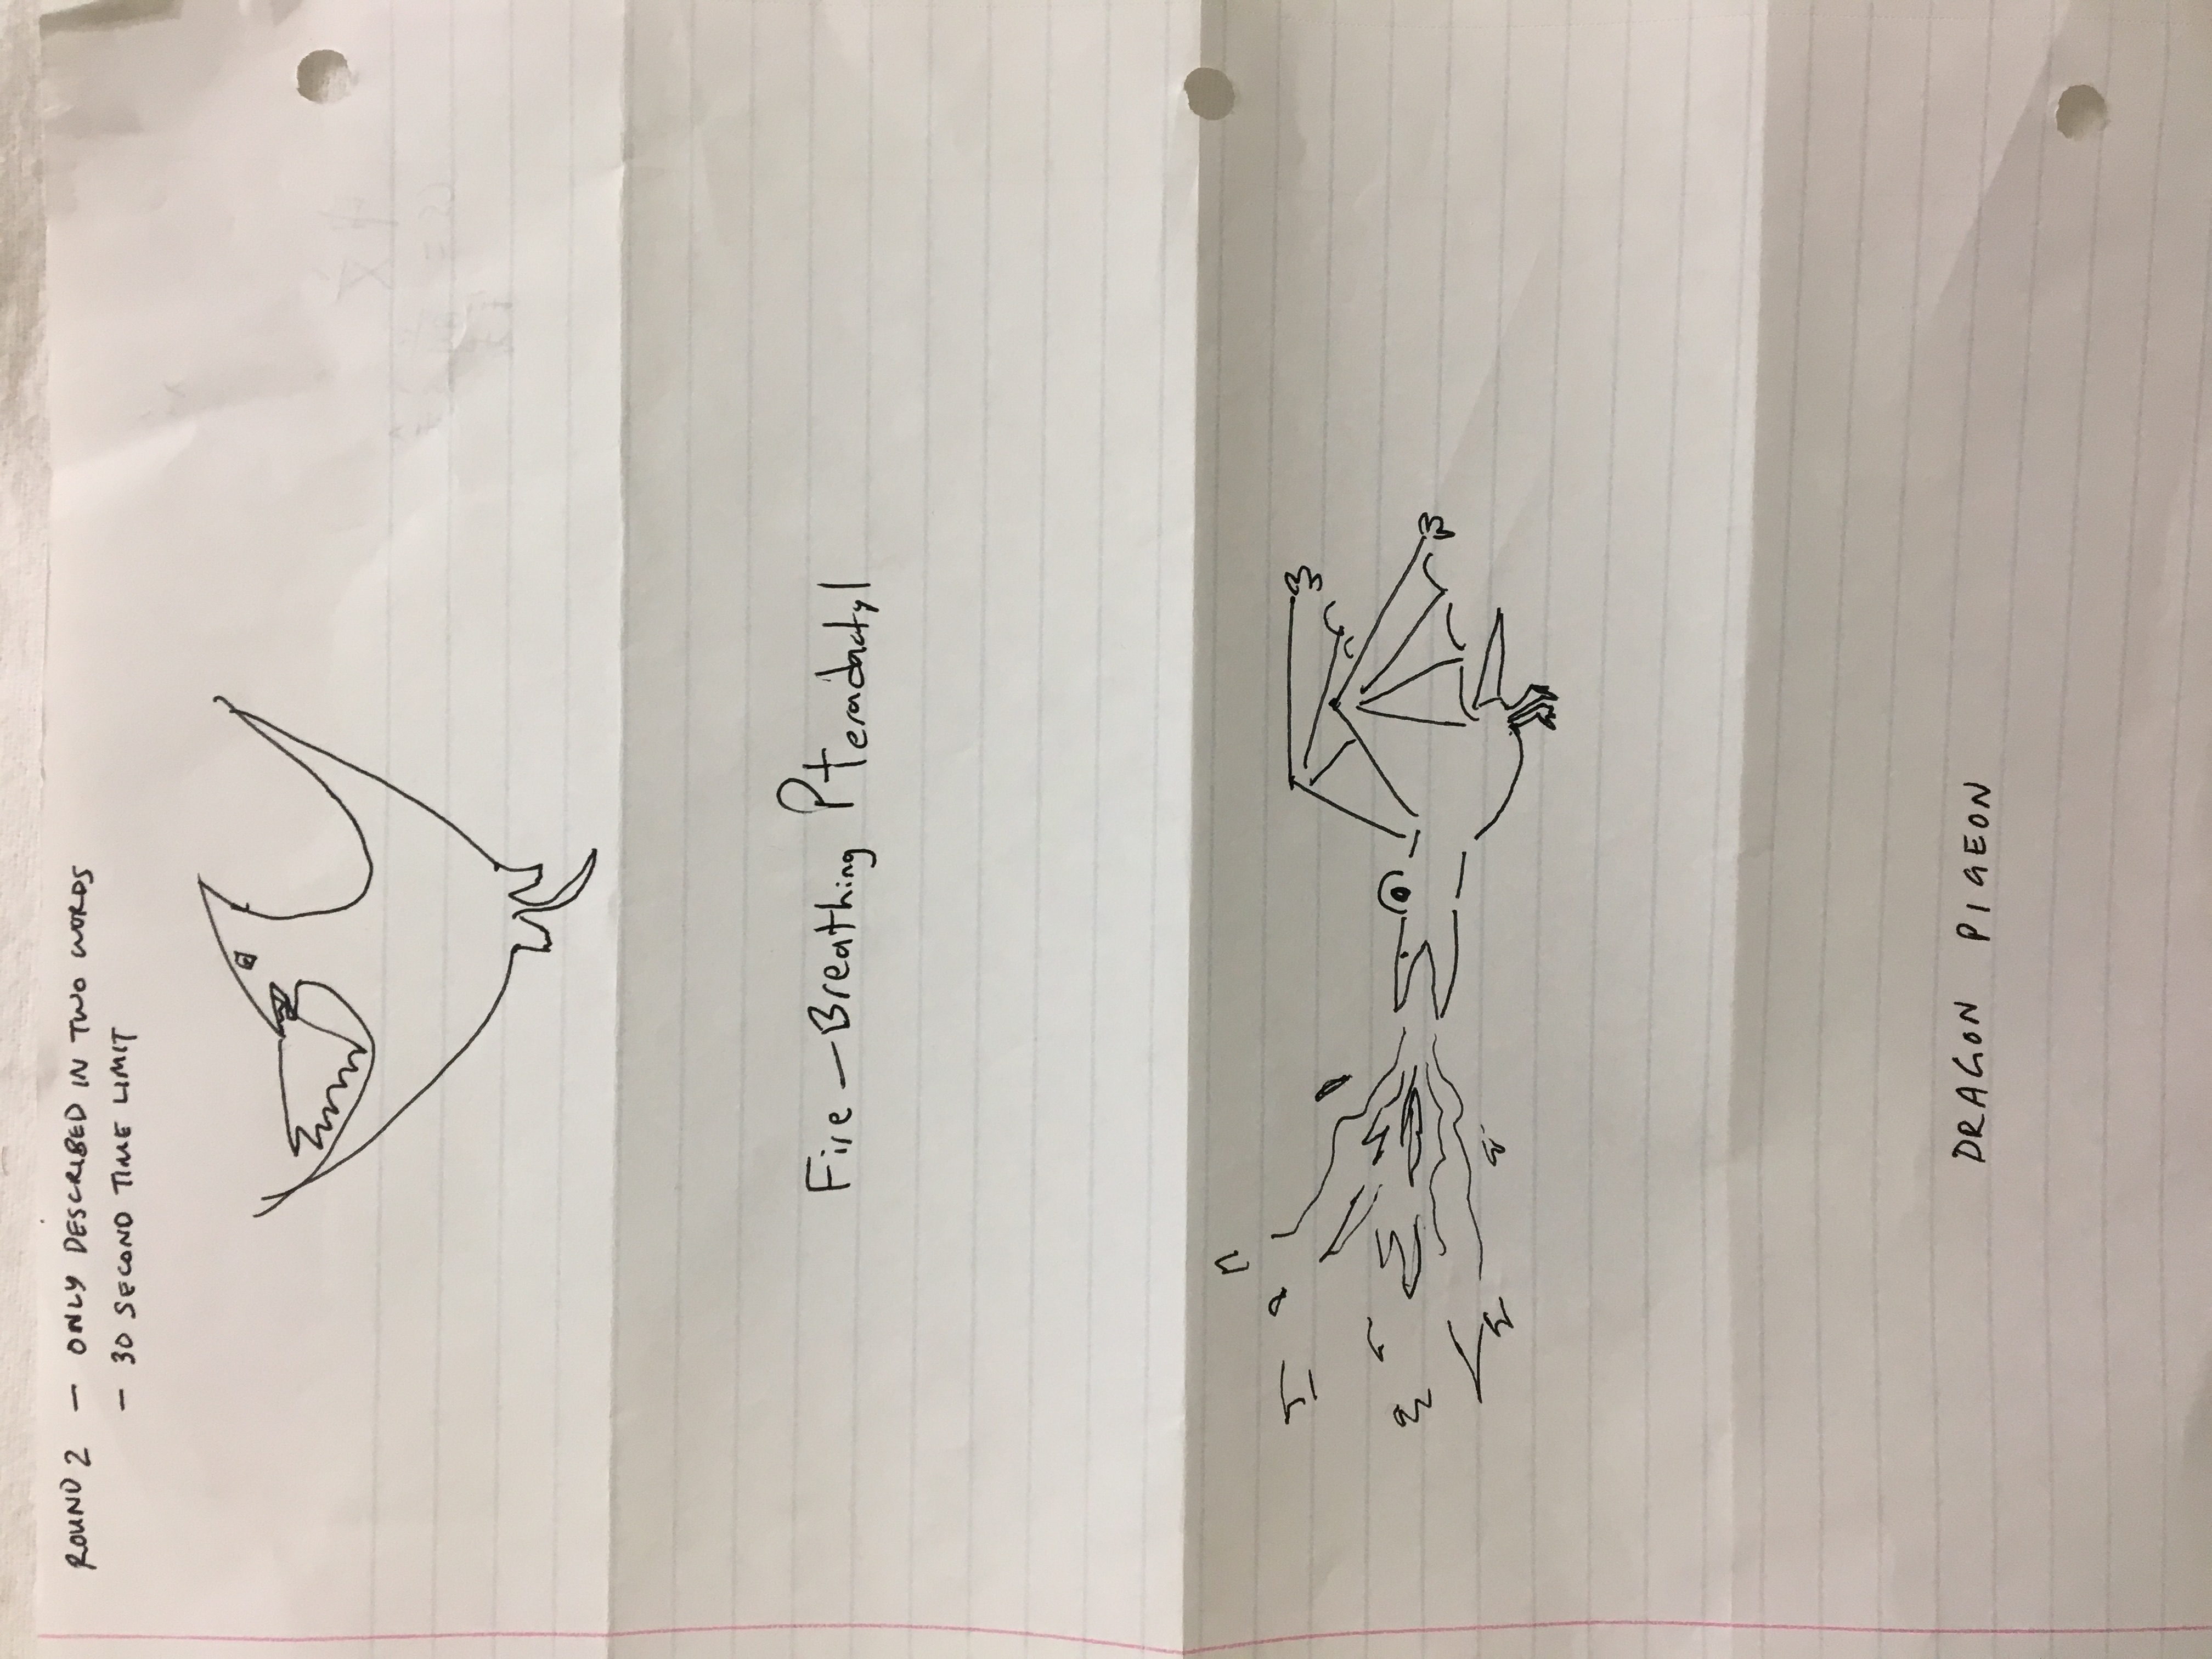 ROUND 2 – ONLY DESCRIBED IN TWO WORDS
– 30 SECOND TIME LIMIT
Fire–Breathing Pteradactyl
DRAGON PIGEON